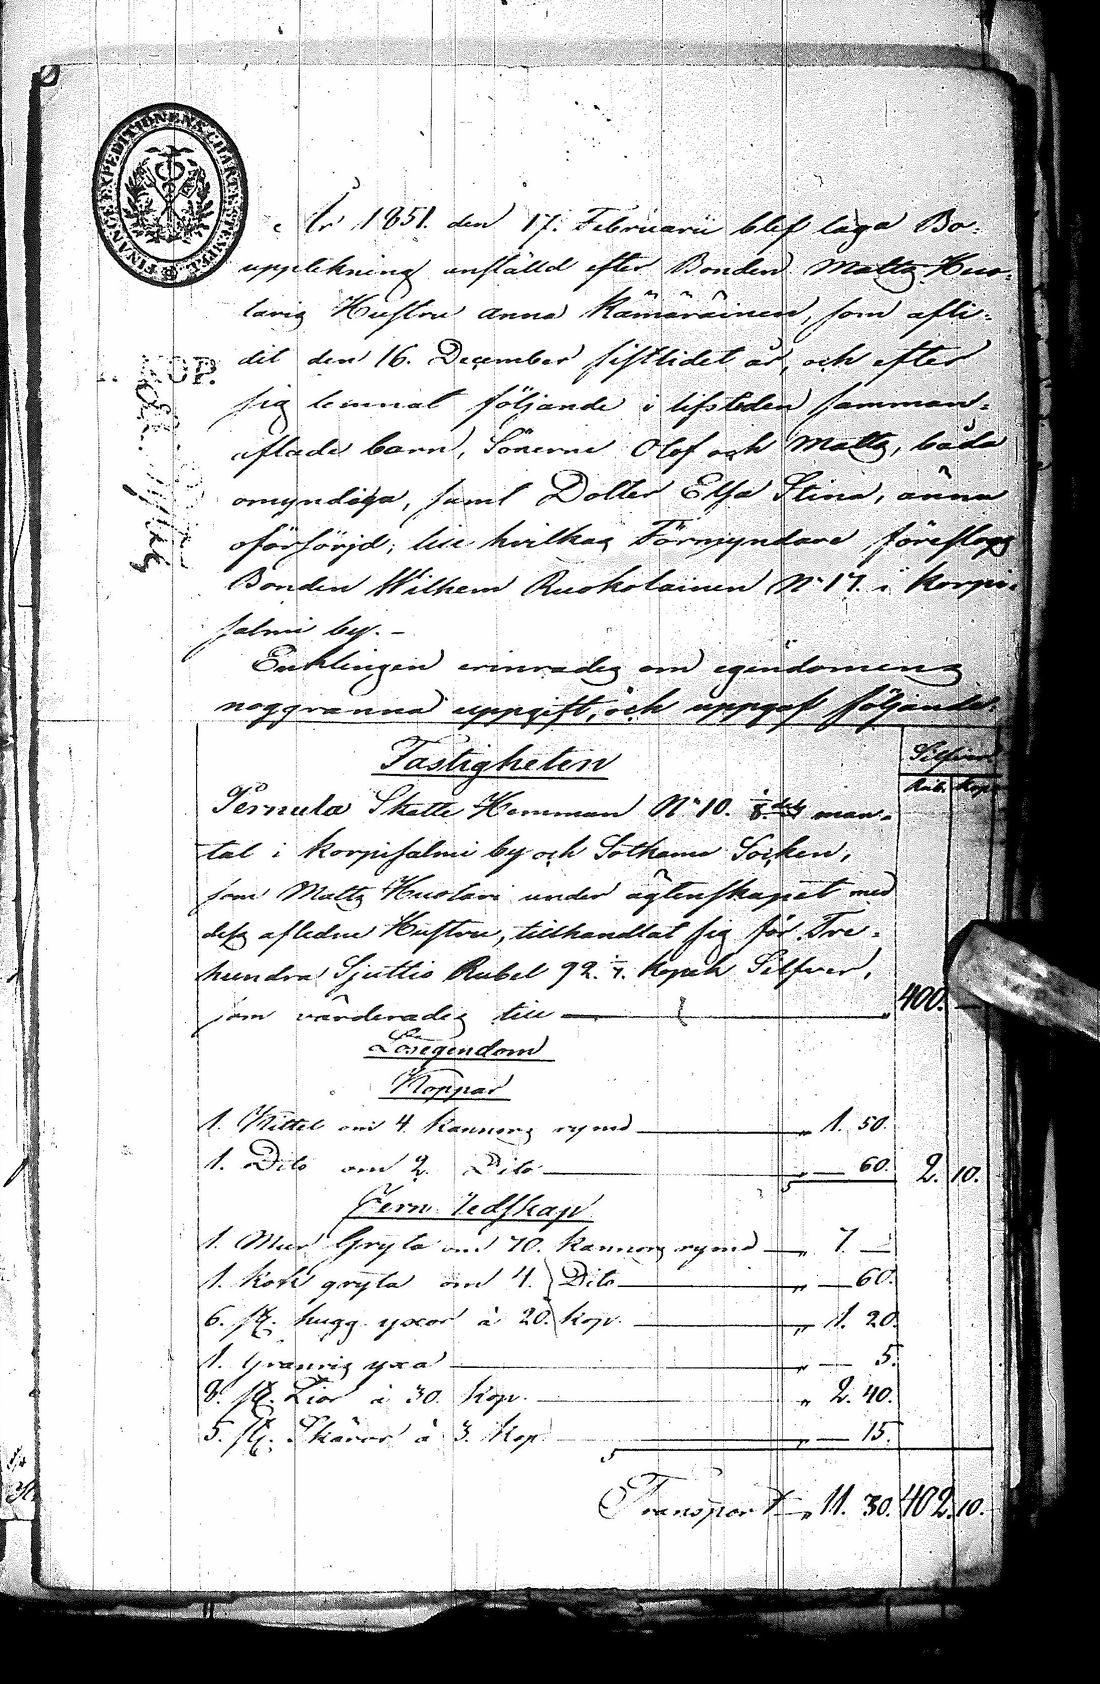 FINANCE EXPEDITIONENS CHARTÆ STEMPEL
År 1851. den 17. Februarii blef laga Bo-
upptekning anställd efter Bonden Matts Huo-
taris Hustru Anna Kämäräinen, som afli-
dit den 16. December sistlidet år, och efter
sig lemnat följande i lifstiden samman-
aflade barn, Sönerne Olof och Matts, båda
omyndiga, samt Dotter Elsa Stina, ännu
oförsörjd; till hvilkas Förmyndare föreslogs
Bonden Wilhem Ruokolainen No 17. i Korpi-
salmi by.-
Enklingen erinrades om egendomens
noggranna uppgift, och uppgaf följande.
KOP.
Fastigheten
Silfver
Rub. Kop.
Pernula Skatte Hemman No 10. man-
tal i Korpisalmi by och Sotkamo Socken,
som Matts Huotari under ägtenskapet med
dess aflidne Hustru, tillhandlat sig för Tre-
hundra Sjuttio Rubel 92. Kopek Silfver,
som värderades till 400. —
Lösegendom
Koppar
1. Kittel om 4 kannors rymd — " 1. 50.
1. Dito om 2. Dito — " — 60. 2. 10.
Jern redskap
1. Mur Gryta om 70. kannors rymd — " 7. —
1. kok gryta om 4. Dito — " — 60.
6. st. hugg yxor à 20. kop. — " 1. 20.
1. Granris yxa — " — 5.
8. st. Lior à 30. kop. — " 2. 40.
5. st. Skäror à 3. kop — " — 15.
Transport " 11. 30. 402. 10.